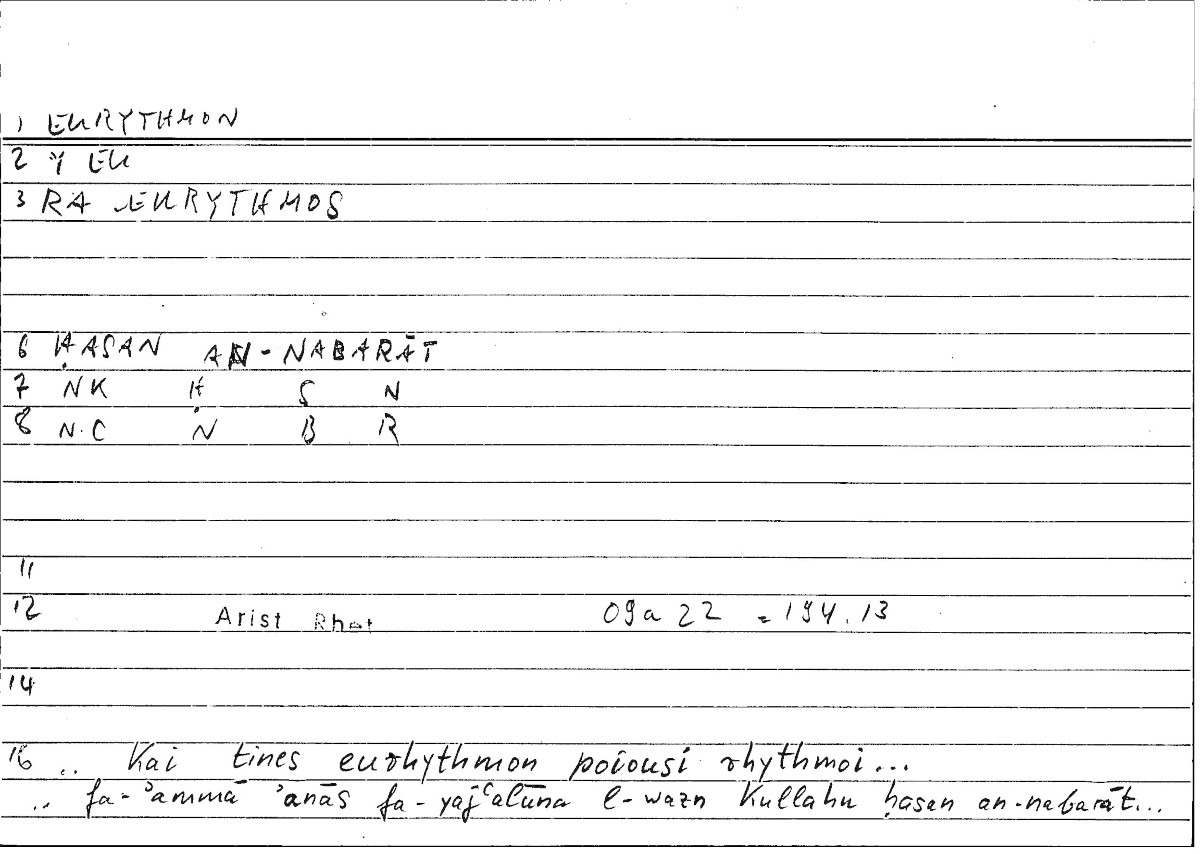 1 EURYTHMON
2 Y EU
3 RA EURYTHMOS
6 ḤASAN AN-NABARĀT
7 NK Ḥ S N
8 N.C N B R
11
12 Arist Rhet 09a 22 = 194.13
14
16 .. Kai tines eurhythmon poiousi rhythmoi...
.. fa-ʾammā ʾanās fa-yaǧʿalūna l-wazn kullahu ḥasan an-nabarāt...